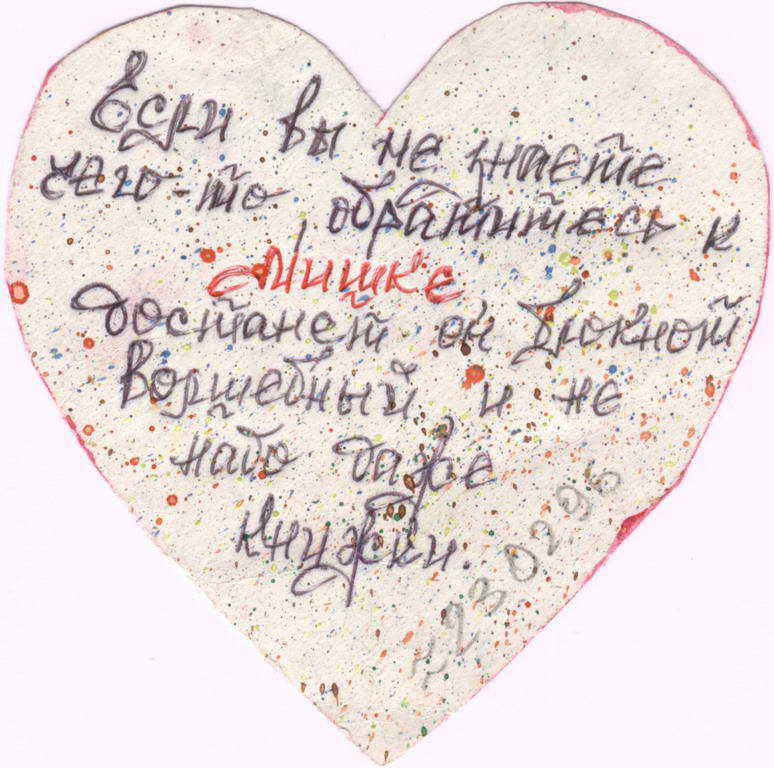 Если вы не знаете
чего-то, обратитесь к
Мишке
достанет он блокнот
Волшебный и не
надо даже
книжки.
к 23.02.96